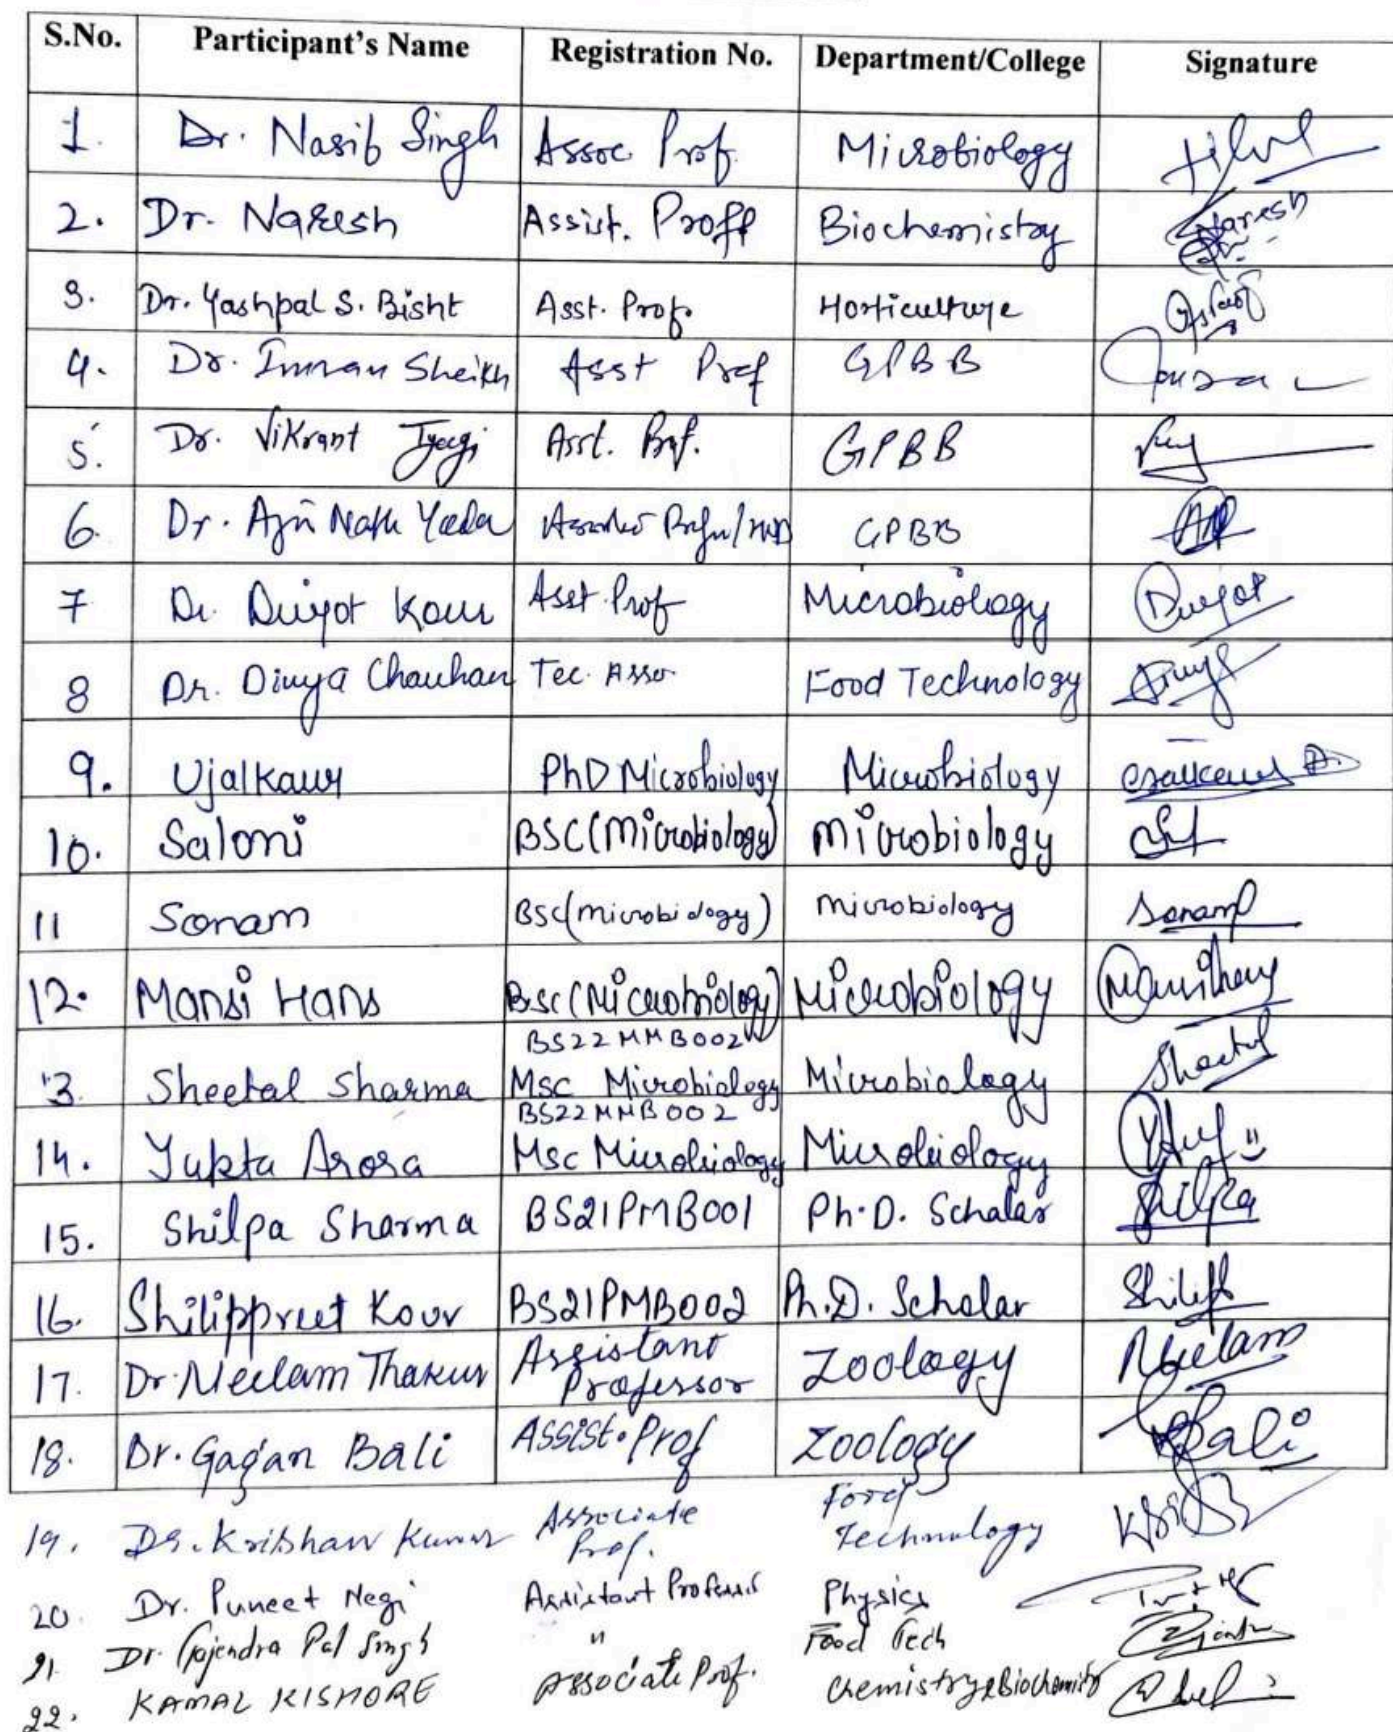 S.No. Participant's Name Registration No. Department/College Signature
1. Dr. Nasib Singh Assoc. Prof. Microbiology
2. Dr. Naresh Assist. Proff Biochemistry Naresh
3. Dr. Yashpal S. Bisht Asst. Prof. Horticulture
4. Dr. Imran Sheikh Asst Prof GPBB
5. Dr. Vikrant Tyagi Asst. Prof. GPBB
6. Dr. Nath GPBB
7 Dr. Kour Asst. Prof Microbiology
8 Dr. Divya Chauhan Tec. Asso. Food Technology Divya
9. Ujalkaur PhD Microbiology Microbiology
10. Saloni BSC(Microbiology) Microbiology
11 Sonam BSc(microbiology) microbiology Sonam
12. Mansi Hans Bsc (Microbiology) Microbiology Mansihans
BS22MMB002
13. Sheetal Sharma Msc Microbiology Microbiology Sheetal
BS22MMB002
14. Yukta Arora Msc Microbiology Microbiology
15. Shilpa Sharma BS21PMB001 Ph.D. Scholar Shilpa
16. Shilippreet Kour BS21PMB002 Ph.D. Scholar
17. Dr. Neelam Thakur Assistant Professor Zoology Neelam
18. Dr. Gagan Bali Assist. Prof Zoology Bali
19. Dr. Krishan Kumar Associate Prof. Food Technology
20. Dr. Puneet Negi Assistant Professor Physics
21. Dr. Gajendra Pal Singh " Food Tech
22. KAMAL KISHORE Associate Prof. Chemistry & Biochemistry